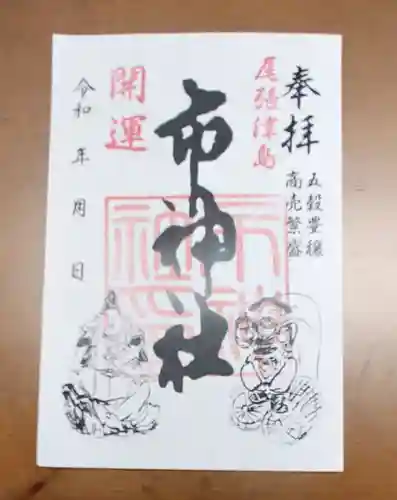 奉拝
五穀豊穣
商売繁盛
尾張津島
市神社
開運
令和 年 月 日